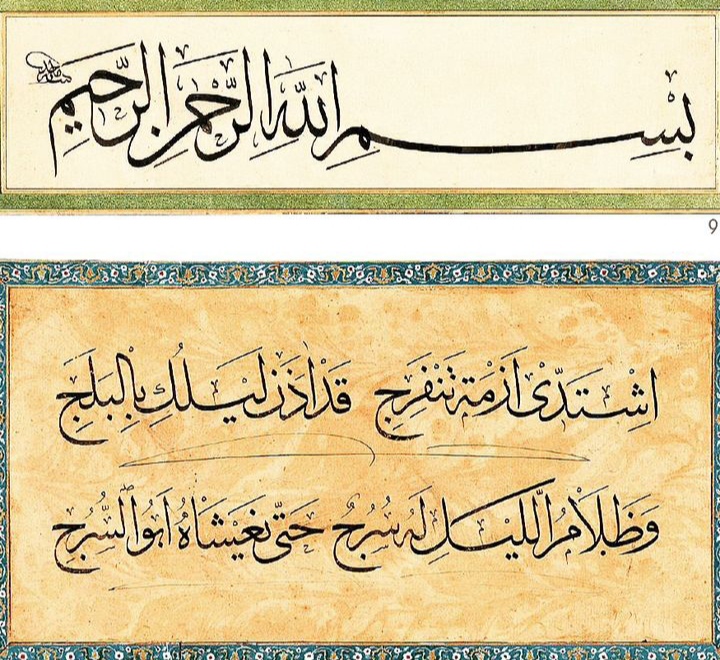 بِسْمِ اللهِ الرَّحْمٰنِ الرَّحِيمِ
9
اِشْتَدِّى اَزْمَةُ تَنْفَرِجِ قَدْ اٰذَنَ لَيْلُكِ بِالْبَلَجِ
وَظَلَامُ اللَّيْلِ لَهُ سُرُجٌ حَتّٰى يَغْشَاهُ اَبُو السُّرُجِ